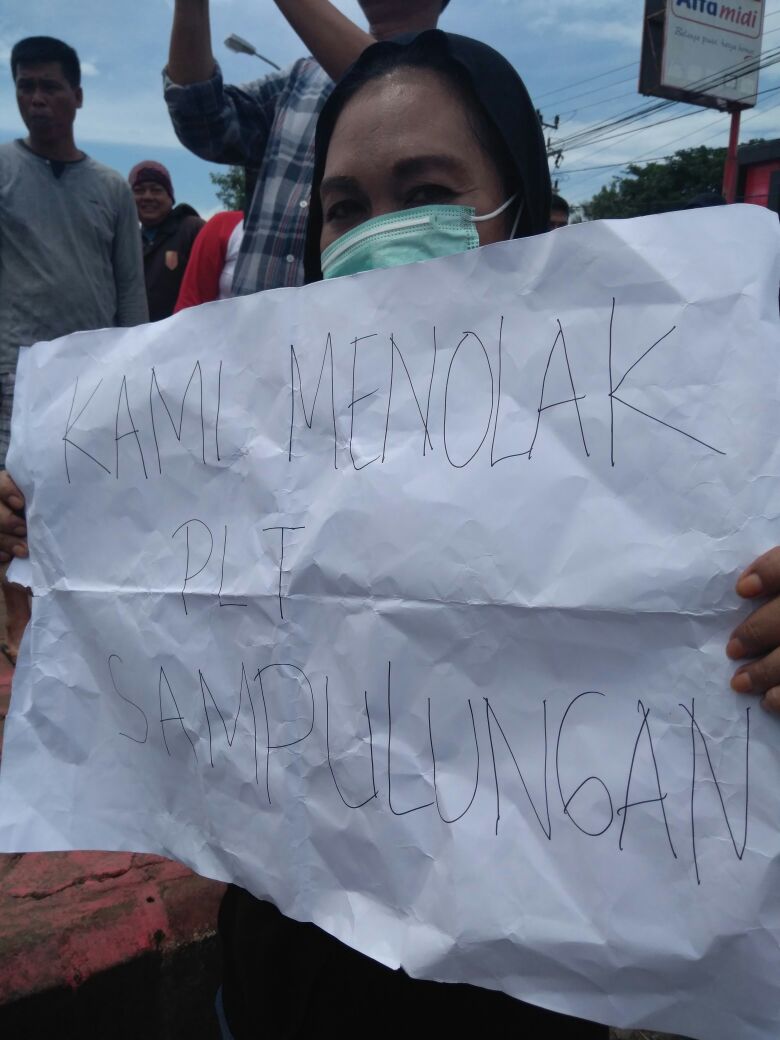 Alfamidi
Belanja puas, harga hemat
KAMI MENOLAK
PLT
SAMPULUNGAN